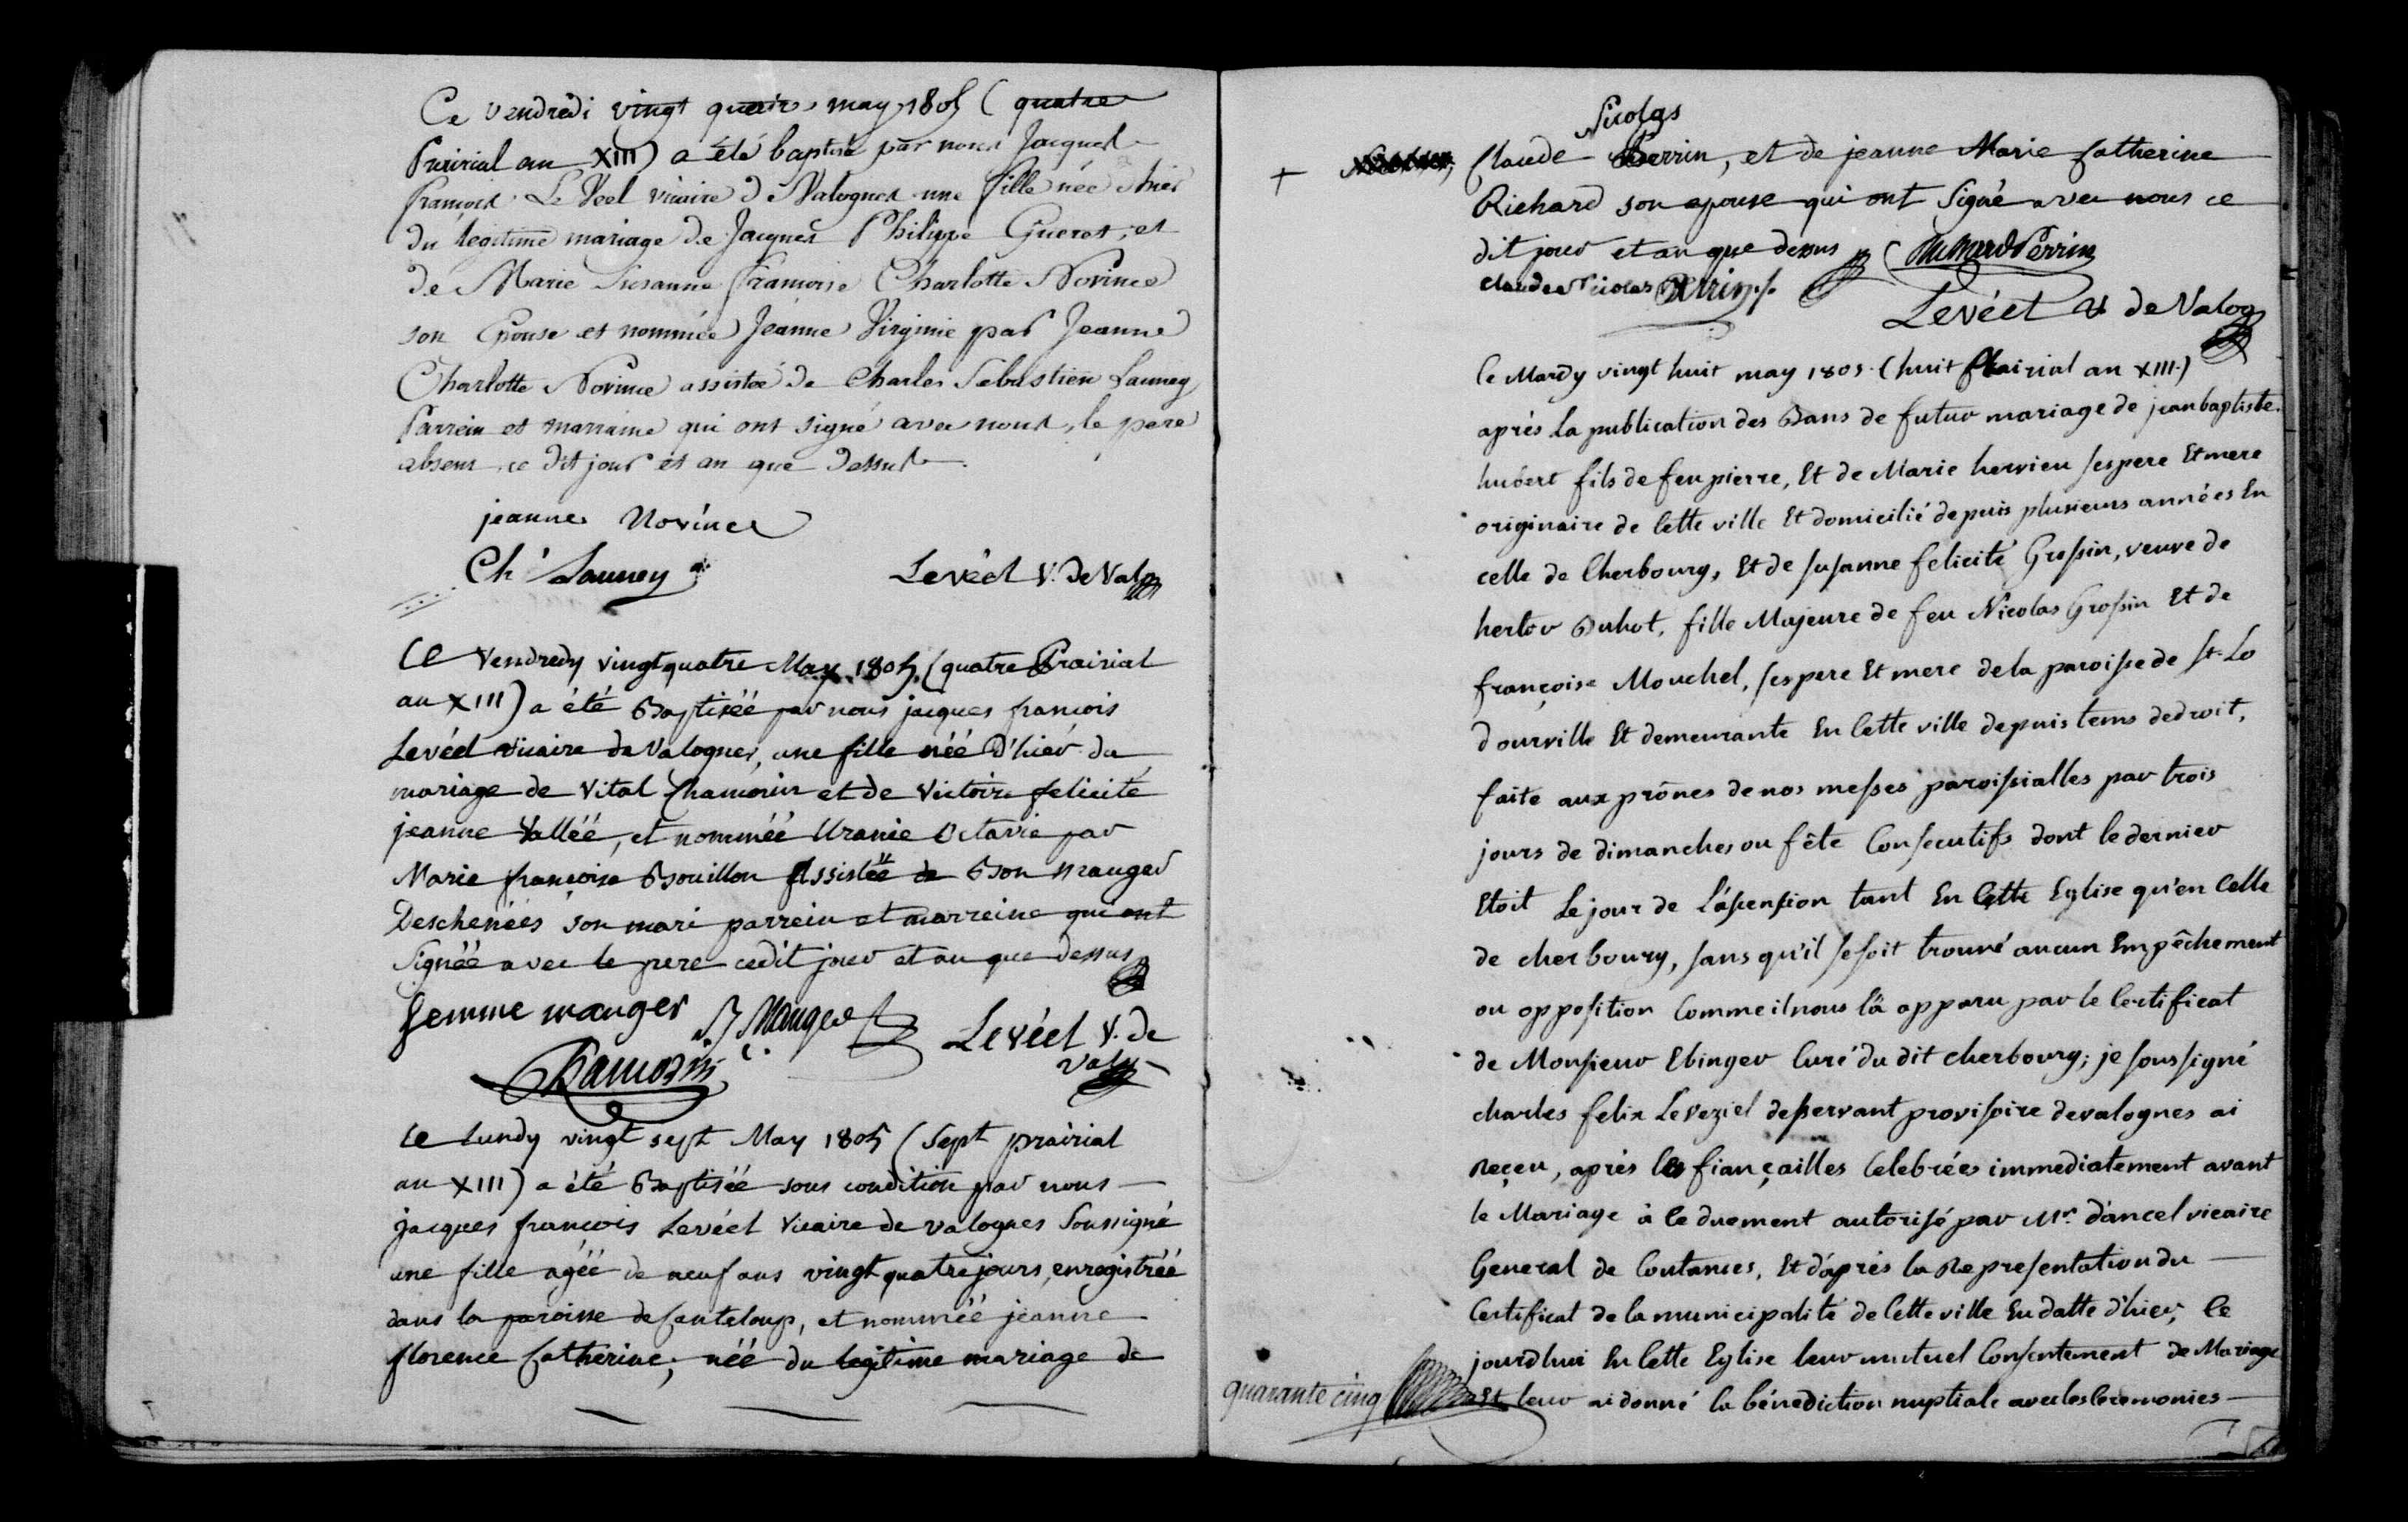 Ce vendredi vingt quatre may 1805 (quatre
Prairial an XIII) a été baptisé par nous Jacques
françois Le Véel vicaire de Valognes une fille née d'hier
du legitime mariage de Jacques Philippe Gueret, et
de Marie Susanne françoise Charlotte Novince
son Epouse et nommée Jeanne Virginie par Jeanne
Charlotte Novince assistée de Charles Sebastien Launey
Parrein et marraine qui ont signé avec nous, le pere
absent, ce dit jour et an que dessus
jeanne Novince
Ch Launey Levéel V. de Valog
Le vendredy vingt quatre May 1805, (quatre Prairial
an XIII) a été Baptiséé par nous jacques françois
Levéel vicaire de Valognes, une fille néé d'hier du
mariage de Vital Chamorin et de Victoire felicité
jeanne Valléé, et nomméé Uranie Octavie par
Marie françoise Bouillon Assistéé de Bon mauger
Deschenéés son mari parrein et marreine qui ont
Signéé avec le pere cedit jour et an que dessus
femme mauger Mauger Levéel V. de
Chamorin Valog
Le Lundy vingt sept May 1805 (Sept prairial
an XIII) a été Baptiséé sous condition par nous
jacques françois Levéel Vicaire de valognes Soussigné
une fille agéé de neuf ans vingt quatre jours, enregistréé
dans la paroisse de Canteloup, et nomméé jeanne
florence Catherine; néé du legitime mariage de
Nicolas
+ Claude Perrin, et de jeanne Marie Catherine
Richard son epouse qui ont Signé avec nous ce
dit jour et an que dessus Richard Perrin
claude Nicolas Perrin
Levéel V de Valog
le Mardy vingt huit may 1805. (huit Prairial an XIII.)
après La publication des Bans de futur mariage de jean baptiste
hubert fils de feu pierre, Et de Marie hervieu ses pere Et mere
originaire de Cette ville Et domicilié depuis plusieurs années En
celle de Cherbourg, Et de susanne felicité Grossin, veuve de
hertor Buhot, fille Majeure de feu Nicolas Grossin Et de
françoise Mouchel, ses pere Et mere de la paroisse de St. Lo
dourville Et demeurante En Cette ville depuis tems de droit,
faite aux prônes de nos messes paroissialles par trois
jours de dimanches ou fête Consecutifs dont le dernier
Etoit Le jour de L'ascension tant En Cette Eglise qu'en Celle
de cherbourg, sans qu'il se soit trouvé aucun Empêchement
ou opposition Comme il nous l'a apparu par le Certificat
de Monsieur Ebinger Curé du dit cherbourg; je soussigné
charles felix Leveziel desservant provisoire de valognes ai
Reçeu, après les fiançailles Celebrées immediatement avant
le Mariage à ce duement autorisé par Mr. dancel vicaire
General de Coutances, Et d'après la Representation du
Certificat de la municipalité de Cette ville En datte d'hier, Ce
jourdhui En Cette Eglise leur mutuel Consentement de Mariage
quarante cinq Et leur ai donné la bénédiction nuptiale avec les Ceremonies